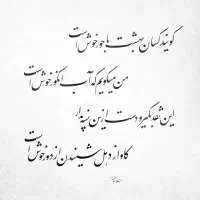 گویند کسان بهشت با حور خوش است
من میگویم که آب انگور خوش است
این نقد بگیر و دست از آن نسیه بدار
کاواز دهل شنیدن از دور خوش است